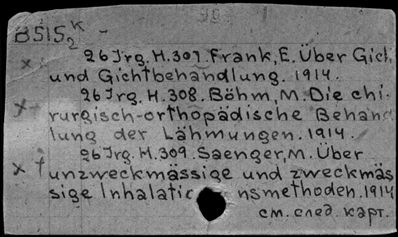 B515₂ К -
26 Jrg. H.307. Frank, E. Über Gich
und Gichtbehandlung. 1914.
26 Jrg. H.308. Böhm, M. Die chi-
rurgisch-orthopädische Behand
lung der Lähmungen. 1914.
26 Jrg. H.309. Saenger, M. Über
unzweckmässige und zweckmäs
sige Inhalatic nsmethoden. 1914
см. след. карт.